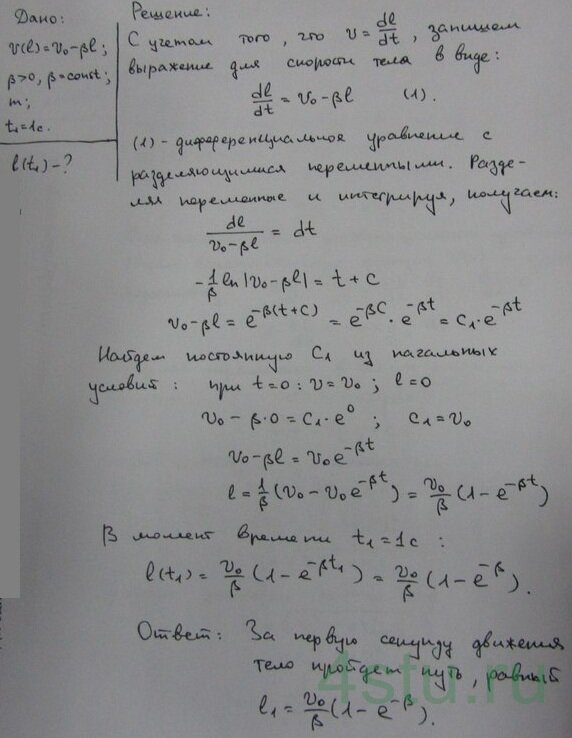 Дано:
v(l)=v₀-βl;
β>0, β=const;
m;
t₁=1с.
l(t₁)-?
Решение:
С учетом того, что v = dl/dt, запишем
выражение для скорости тела в виде:
dl/dt = v₀-βl (1).
(1) - дифференциальное уравнение с
разделяющимися переменными. Разде-
ляя переменные и интегрируя, получаем:
dl/(v₀-βl) = dt
-1/β ln|v₀-βl| = t + c
v₀-βl = e^{-β(t+c)} = e^{-βc}·e^{-βt} = c₁·e^{-βt}
Найдем постоянную c₁ из начальных
условий: при t=0: v=v₀; l=0
v₀ - β·0 = c₁·e⁰; c₁=v₀
v₀-βl = v₀e^{-βt}
l = 1/β (v₀ - v₀e^{-βt}) = v₀/β (1-e^{-βt})
В момент времени t₁=1с:
l(t₁) = v₀/β (1-e^{-βt₁}) = v₀/β (1-e^{-β}).
Ответ: За первую секунду движения
тело пройдет путь, равный
l₁ = v₀/β (1-e^{-β}).
4stu.ru